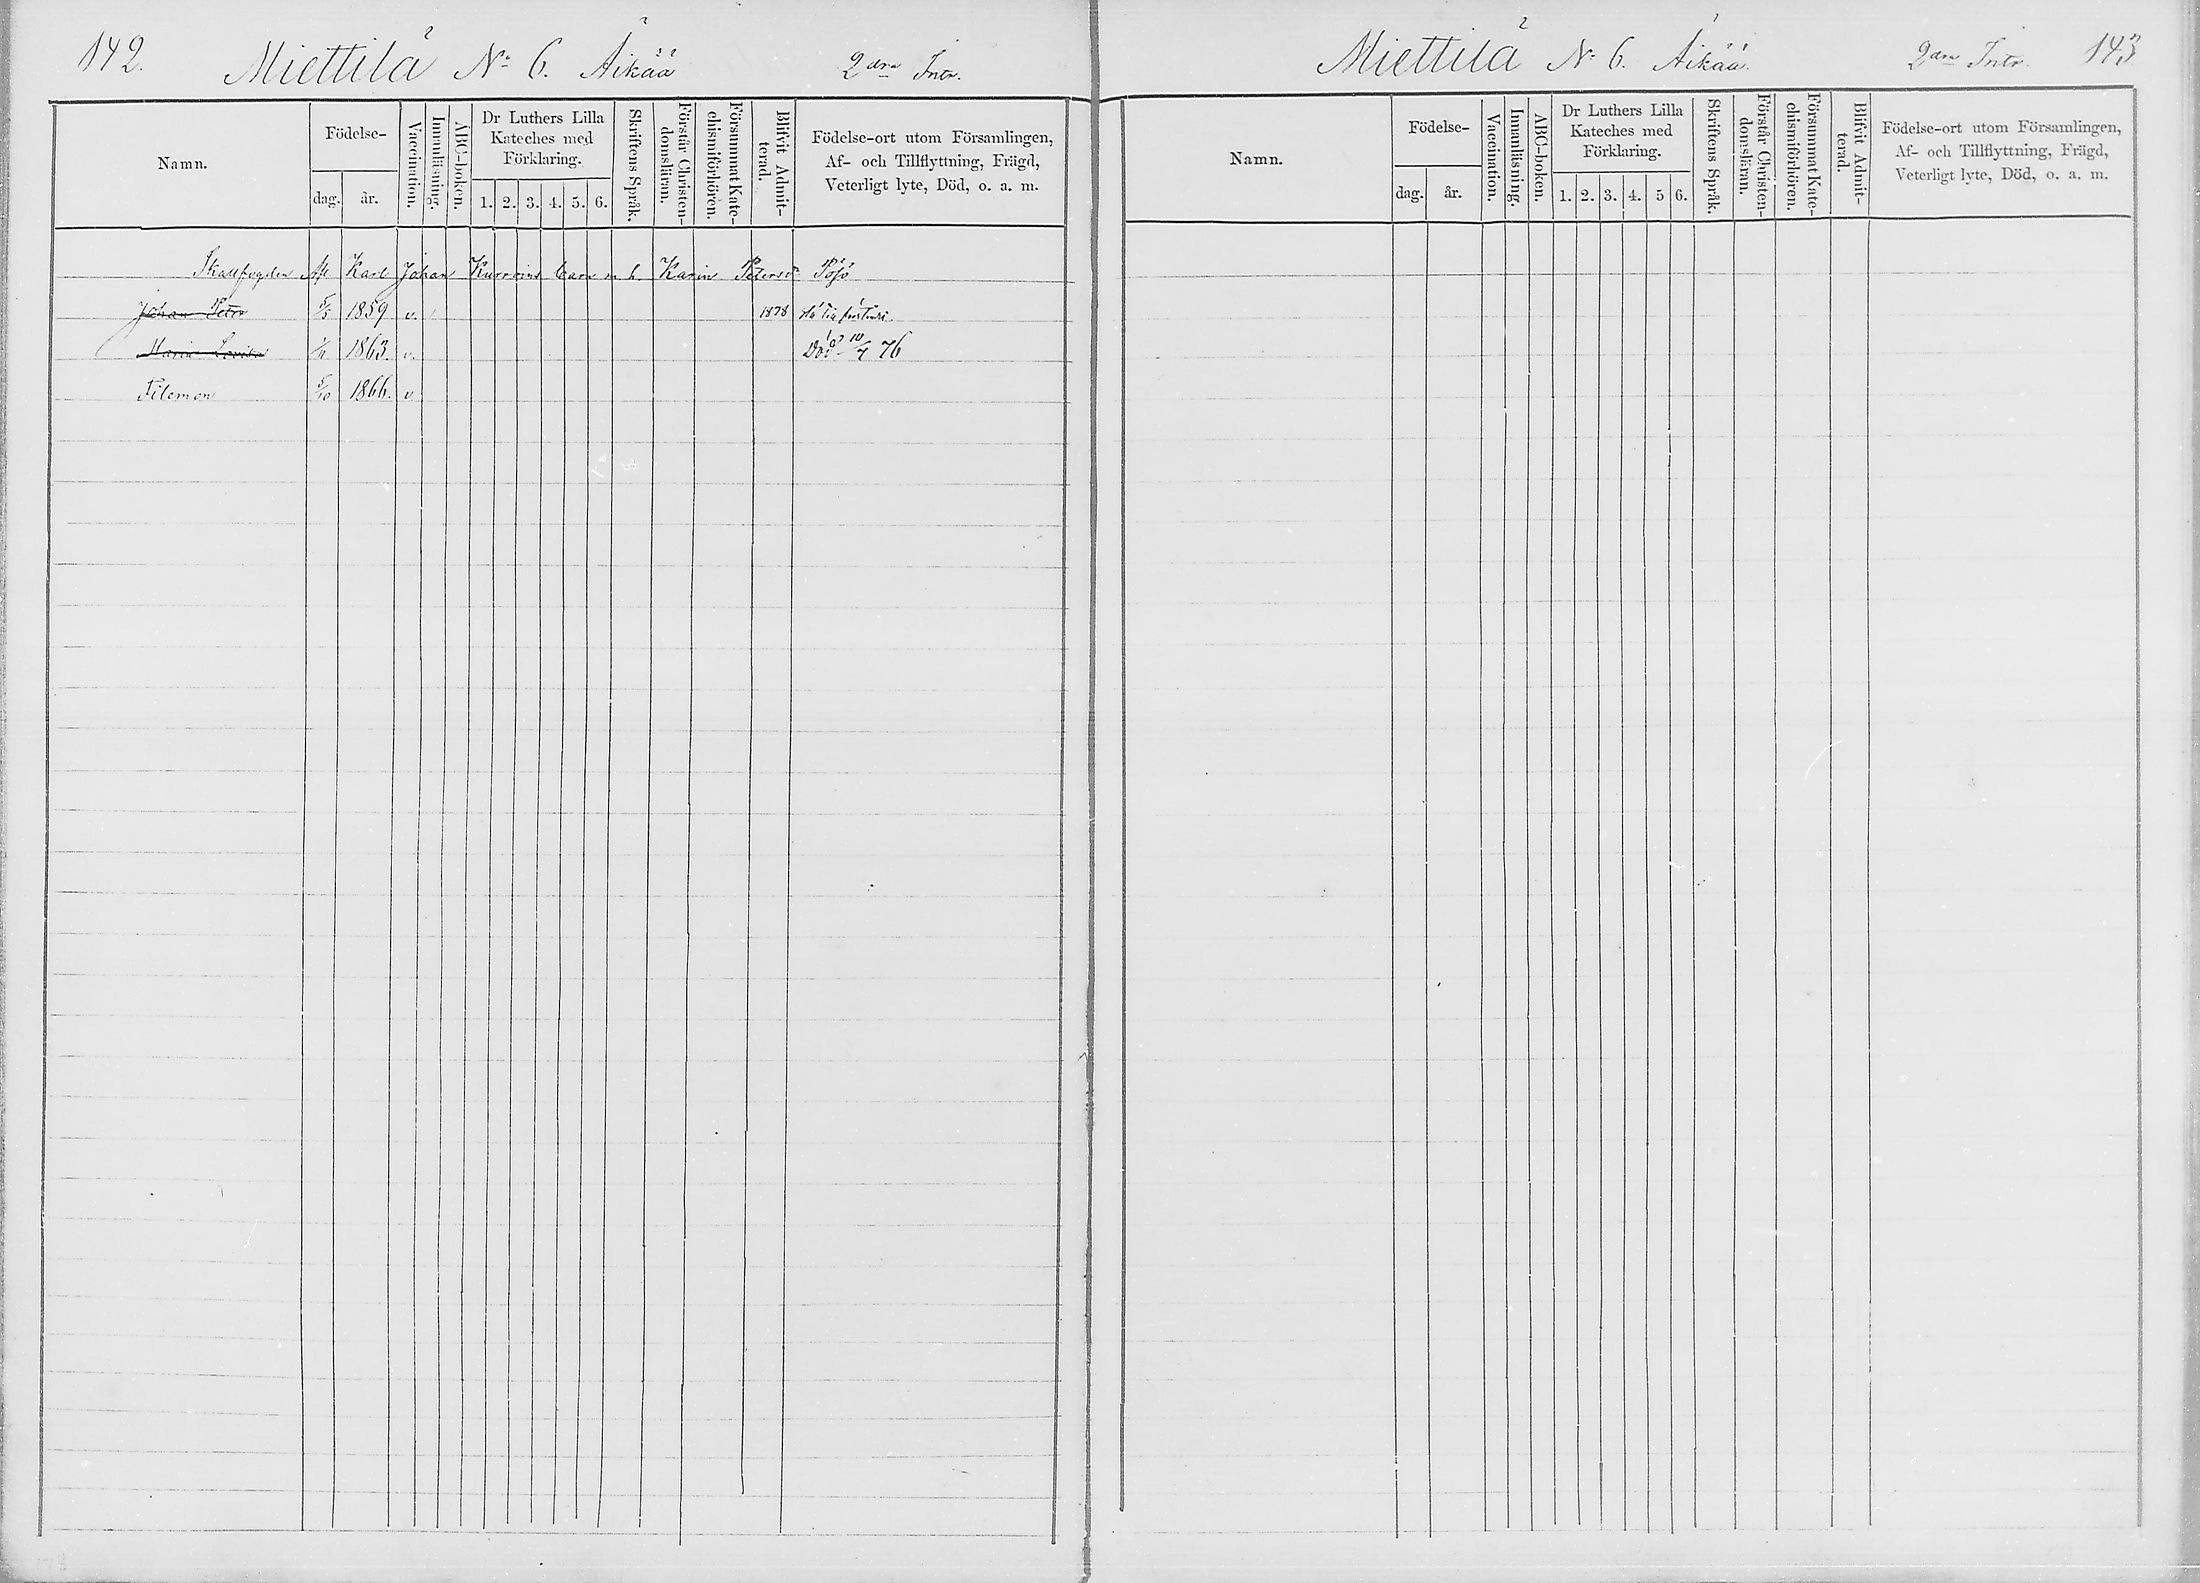 142. Miettilä No 6. Äikää 2dra Intr.
Namn.
Födelse-
dag.
år.
Vaccination.
Innanläsning.
ABC-boken.
Dr Luthers Lilla
Kateches med
Förklaring.
1. 2. 3. 4. 5. 6.
Skriftens Språk.
Förstår Christen-
domsläran.
Försummat Kate-
chismiförhören.
Blifvit Admit-
terad.
Födelse-ort utom Församlingen,
Af- och Tillflyttning, Frägd,
Veterligt lyte, Död, o. a. m.
Karl Johan barn m h. Karin Petersdr
Johan Petter 5/5 1859 v. 1878
Maria Lovisa 1863. v. Död 10/7 76
Filemon 5/10 1866. v
Miettilä No 6. Äikää. 2dra Intr. 143
Namn.
Födelse-
dag.
år.
Vaccination.
Innanläsning.
ABC-boken.
Dr Luthers Lilla
Kateches med
Förklaring.
1. 2. 3. 4. 5 6.
Skriftens Språk.
Förstår Christen-
domsläran.
Försummat Kate-
chismiförhören.
Blifvit Admit-
terad.
Födelse-ort utom Församlingen,
Af- och Tillflyttning, Frägd,
Veterligt lyte, Död, o. a. m.